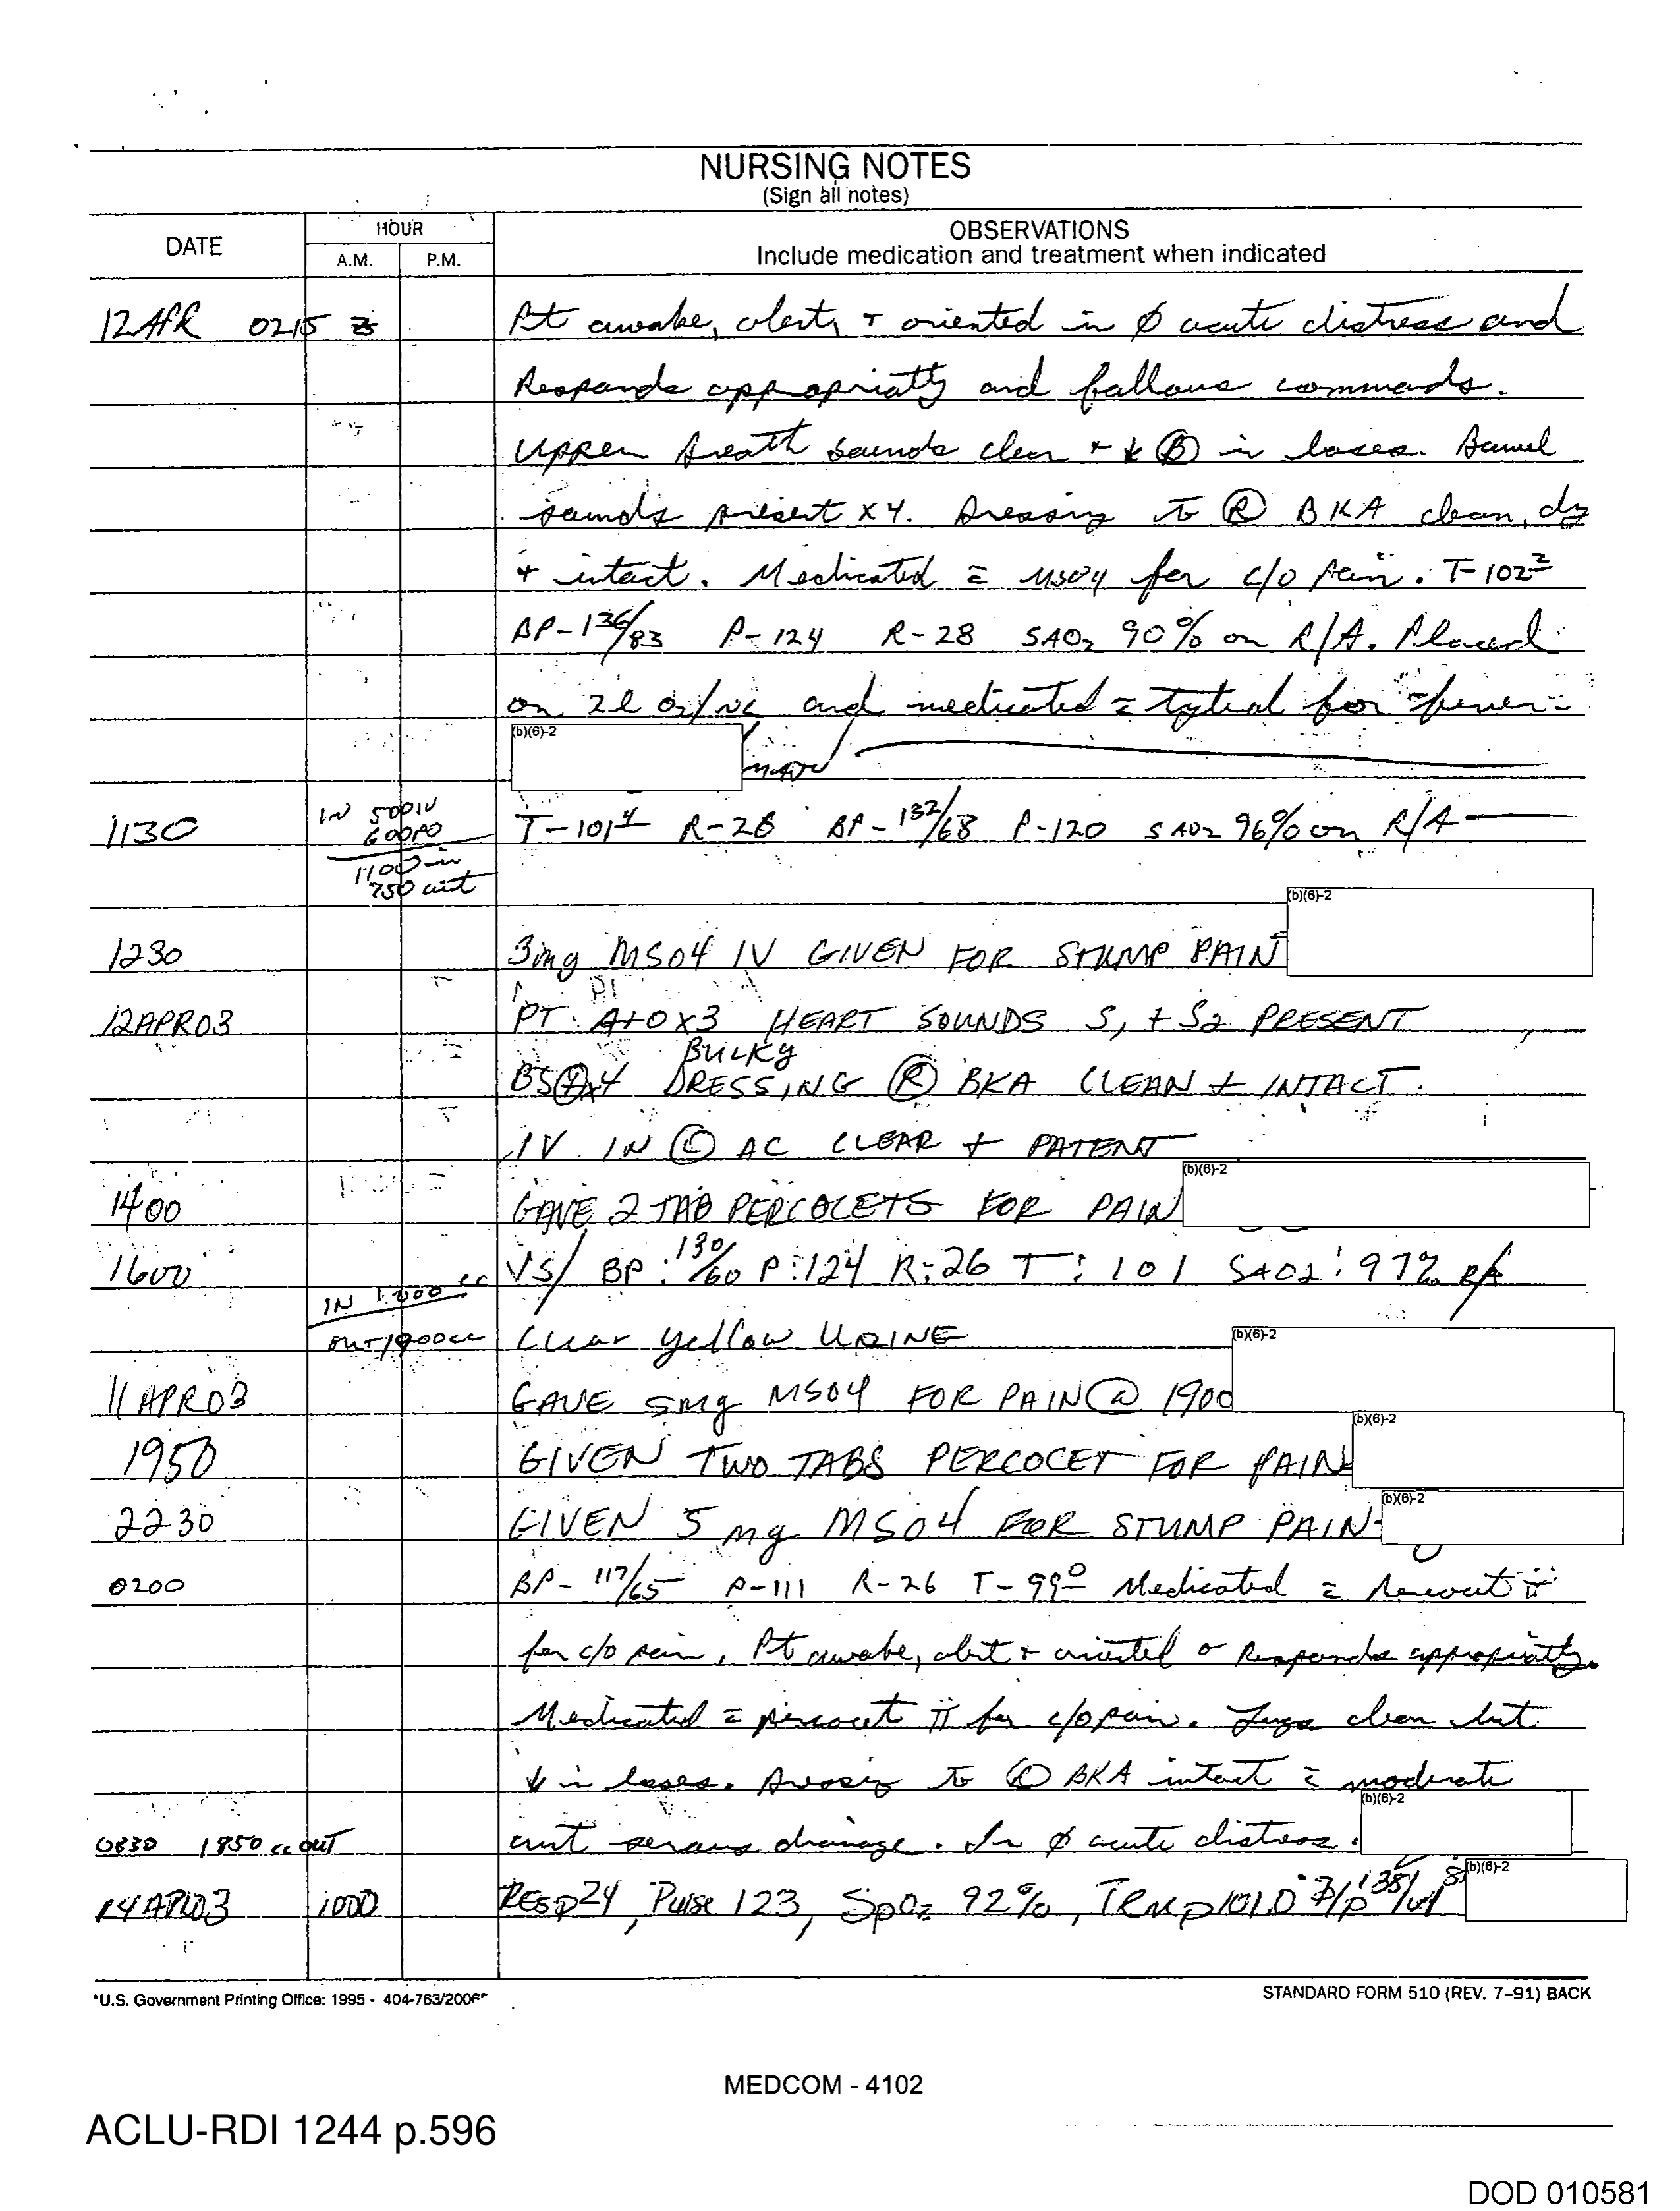 NURSING NOTES
(Sign all notes)
DATE
HOUR
A.M. P.M.
OBSERVATIONS
Include medication and treatment when indicated
12 APR 0215 Pt awake, alert, + oriented in ϕ acute distress and
Responds appropriatly and fallows commands.
Upper breath sounds clear + ↓ Ⓑ in bases. Bowel
sounds present x4. Dressing to Ⓡ BKA clean, dry
+ intact. Medicated c̄ MSO4 for c/o pain. T-102²
BP-136/83 P-124 R-28 SAO2 90% on R/A. Placed
on 2l O2/NC and medicated c̄ tylenol for fever
(b)(6)-2
1130 IN 500IV T-101⁴ R-28 BP-132/68 P-120 SAO2 96% on R/A
600PO
1100 in
750 out
(b)(6)-2
1230 3mg MSO4 IV GIVEN FOR STUMP PAIN
12APR03 PT: A+O X3 HEART SOUNDS S1 + S2 PRESENT
BULKY
BS⊕x4 DRESSING Ⓡ BKA CLEAN + INTACT.
IV IN Ⓛ AC CLEAR + PATENT
(b)(6)-2
1400 GAVE 2 TAB PERCOCETS FOR PAIN
1600 VS/ BP: 130/60 P: 124 R: 26 T: 101 SAO2: 97% RA
IN 1200 cc
OUT 1900cc Clear yellow URINE
(b)(6)-2
11 APR03 GAVE 5mg MSO4 FOR PAIN @ 1900
(b)(6)-2
1950 GIVEN TWO TABS PERCOCET FOR PAIN
(b)(6)-2
2230 GIVEN 5 mg MSO4 FOR STUMP PAIN
0200 BP-117/65 P-111 R-26 T-99⁰ Medicated c̄ Percocet ii
for c/o pain. Pt awake, alert + oriented Responds appropriatly.
Medicated c̄ percocet II for c/o pain. Lungs clean but
↓ in bases. Dressing to BKA intact c̄ moderate
(b)(6)-2
0830 1850 cc out amt serous drainage. In ϕ acute distress.
(b)(6)-2
14APR03 1000 Resp 24, Pulse 123, SpO2 92%, Temp 101.0 B/P 138/
*U.S. Government Printing Office: 1995 - 404-763/2006
STANDARD FORM 510 (REV. 7-91) BACK
MEDCOM - 4102
ACLU-RDI 1244 p.596
DOD 010581